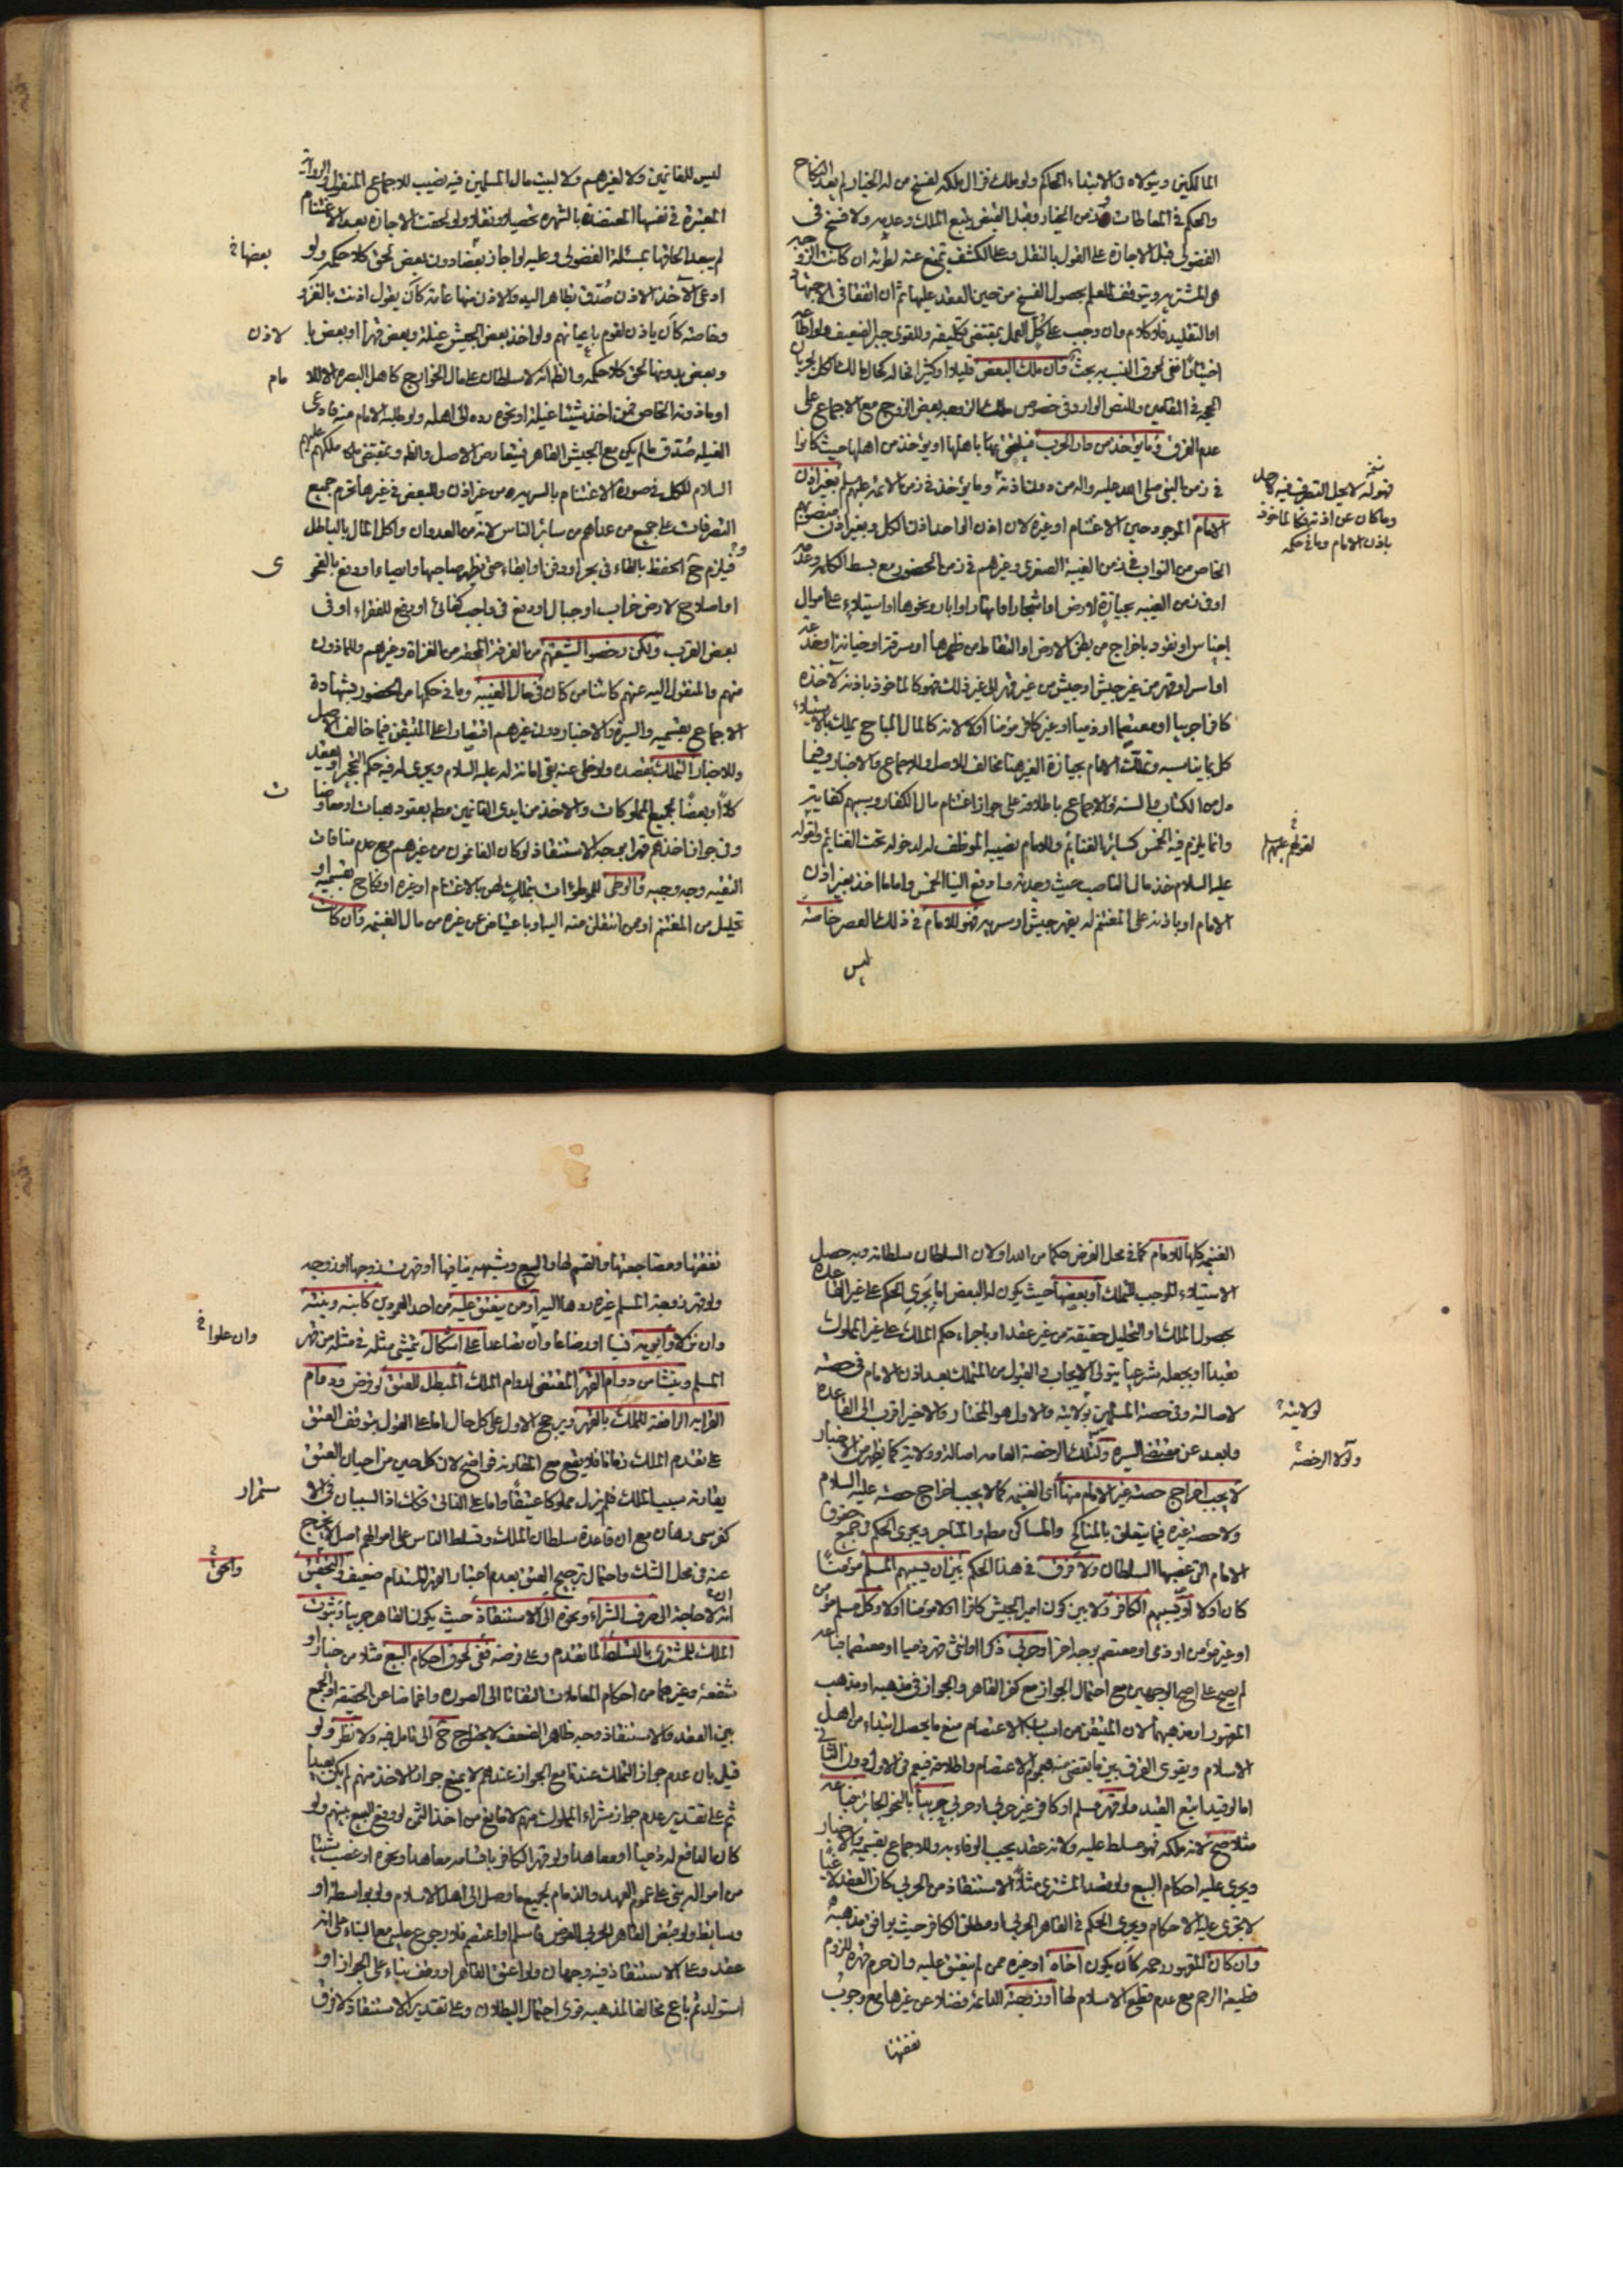 المالكين ويتولاه في الابتداء الحاكم ولو ملك فزال ملكه لفسخ من له الخيار لم يعد النكاح
والحكم في المعاطات وفي زمن الخيار وقبل القبض يتبع الملك وعدمه ولا فسخ في
الفضولي قبل الاجازة على القول بالنقل وعلى الكشف تمنع عنه لو كانت الزوجة
هي المشتريه ويتوقف العلم بحصول الفسخ من حين العقد عليها ثم ان اتفقا في الاجتهاد
او التقليد فلا كلام وان وجب على كل العمل بمقتضى تكليفه وللقوي جبر الضعيف
في لحوق النسب به بحث وان ملك البعض قليلا او كثيرا فحاله كحال مالك الكل لجريان
الحجه في المقامين وللنص الوارد في خصوص ملك الزوجه بعض الزوج مع الاجماع على
عدم الفرق وما يؤخذ من دار الحرب او يؤخذ من اهلها حيث كانوا
في زمن النبي صلى الله عليه واله من دون اذنه وما يؤخذ في زمن الائمه عليهم السلم بغير اذن
الامام الموجود حين الاغتنام او غيره لان اذن الواحد اذن الكل وبغير اذن منصوبهم
الخاص من النواب في زمن الغيبة الصغرى وغيرهم في زمن الحضور مع بسط الكلمه وعدمه
او في زمن الغيبه بحيازة لارض او اشجار او انهار او ابار ونحوها او استيلاء على اموال
اجناس او نقود باخراج من بطن الارض او التقاط من ظهرها او سرقة او خيانة او خدعه
او اسر او قهر من غير جيش او جيش من غير قهر الى غير ذلك فهو كالماخوذ باذنه لآخذه
كافرا حربيا او معتصما او ذميا او غير كافر مؤمنا او لا لانه كالمال المباح يملك بالاستيلاء
كل بما يناسبه وتملك الامام بحيازة الغير هنا مخالف للاصل وللاجماع والاخبار وفيما
دل من الكتاب والسنه والاجماع باطلاقه على جواز اغتنام مال الكفار وسبيهم كفايته
وانما يلزم فيه الخمس كسائر الغنائم وللامام نصيبه الموظف له لدخوله تحت الغنائم ولقوله
عليه السلام خذ مال الناصب حيث وجدته وادفع الينا الخمس واما ما اخذ بغير اذن
الامام او باذنه على المغنم له بقهر جيش او سريه فهو للامام في ذلك العصر خاصه
ليس
فهو له لا يحل التصرف فيه
وما كان عن اذنه فكالماخوذ
باذن الامام وما في حكمه
لقولهم عليهم السلم
ليس للغانمين ولا لغيرهم ولا لبيت مال المسلمين فيه نصيب للاجماع المنقول والرواية
المعتبرة في نفسها المعتضدة بالشهره تحصيلا ونقلا ولو لحقت الاجازة بعد الاغتنام
لم يبعد الحاقها بمسئلة الفضولي وعليه لو اجاز بعضا دون بعض لحق كلا حكمه ولو
بعضها
ادعى الآخذ الاذن صدق بظاهر اليد والاذن منها عامة كأن يقول اذنت بالغزو
وخاصة كأن ياذن لقوم باعيانهم ولو اخذ بعض الجيش غيلة وبعض قهرا او بعض با
لاذن
وبعض بدونها لحق كلا حكمه والظ انه لا سلطان على مال الخوارج كاهل البصره الا للا
مام
او ماذونه الخاص فمن اخذ شيئا غيلة او نحوه رده الى اهله ولو طلبه الامام منه فادعى
الغيله صدق ما لم يكن مع الجيش القاهر فيتعارض الاصل والظ ومقتضى ملكهم عليهم
السلام للكل في صورة الاغتنام بالسريه من غير اذن والبعض في غيرها تحرم جميع
التصرفات على جميع من عداهم من سائر الناس لانه من العدوان واكل المال بالباطل
فيلزم ح الحفظ بالقاء في بحر او دفن او ابقاء حتى يظهر صاحبها وايصاء او دفع بالفحو
ى
او اصلاح لارض خراب او جبال او دفع في واجب كفائي او دفع للفقراء او في
بعض القرب ولكن رخصوا لشيعتهم من الفرقة المحقه من الغزاة وغيرهم وللماذون
منهم والمنقول اليه عنهم كائنا من كان في حال الغيبه وما في حكمها من الحضور بشهادة
الاجماع بقسميه والسيرة والاخبار دون غيرهم اقتصارا على المتيقن فيما خالف الاصل
وللاخبار التملك بقصده ولو خلى عنه بقى امانة له عليه السلام ويجرى له فيه حكم التخيير او بعقد
كلا وبعضا لجميع المملوكات والاخذ من ايدي الغانمين مط بعقود هبات او معاوضا
ت
وفي جواز اخذهم قهرا بوجه الاستنقاذ لو كان الغانمون من غيرهم مع عدم منافات
التقيه وجه وجيه والوطى للموطوءات بتملك لهن بالاغتنام او غيره او نكاح بقسميه او
تحليل من المغتنم او ممن انتقلن منه اليه او باعتياض عن غيره من مال الغنيمه وان كانت
الغنيمه كلها للامام كما في محل الفرض حكما من الله او لان السلطان سلطانه وبه حصل
الاستيلاء الموجب للتملك او بعضها حيث يكون له البعض اما بجري الحكم على غير القاعده
بحصول الملك او التحليل حقيقة من غير عقد او باجراء حكم الملك على غير المملوك
تعبدا او بجعله شرعيا يتولى الايجاب والقبول من المتملك بعد اذن الامام في حصته
لاصالته وفي حصة المسلمين بولايته والاول هو المختار والاخير اقرب الى القاعده
لولايته
وابعد عن مقتضى السيره وكذلك الرخصة العامه اصالة وولاية كما يظهر من الاخبار
ولولا الرخصه
لا يجب اخراج حصة غير الامام منها اي الغنيمه كما لا يجب اخراج حصته عليه السلام
ولا حصة غيره فيما يتعلق بالمناكح والمساكن مط والمتاجر ويجرى الحكم في جميع حقوق
الامام التي غصبها السلطان ولا فرق في هذا الحكم بين ان يسبيهم المسلم مؤمنا
كان او لا او يسبيهم الكافر ولا بين كون امير الجيش كافرا او لا مؤمنا او لا وكل مسلم مؤمن
او غير مؤمن او ذمي او معتصم بوجه اخر او حربي ذكرا او انثى قهر ذميا او معتصما فباعه
لم يصح على اصح الوجهين مع احتمال الجواز مع كفر القاهر والجواز في مذهبه او مذهب
المقهور او مذهبهما لان المتيقن من اسباب الاعتصام منع ما يحصل ابتداء من اهل
الاسلام ويقوى الفرق بين ما يقضى منه بعموم الاعتصام واطلاقه فيعم في الاول دون الثاني
اما لو قيد اتبع القيد ولو قهر مسلم او كافر غير حربي او حربي حربيا بالنحو الجائز فباعه
مثلا صح لانه ملكه فهو مسلط عليه ولانه عقد يجب الوفاء به وللاجماع بقسميه والاخبار
ويجرى عليه احكام البيع ولو قصد المشتري مثلا الاستنقاذ من الحربي كان العقد لاغيا
لا تجرى عليه الاحكام ويجرى الحكم في القاهر الحربي او مطلق الكافر حيث يوافق مذهبه
وان كان المقهور رحمه كأن يكون اخاه او غيره ممن لم ينعتق عليه وان حرم قهره للزوم
قطيعة الرحم مع عدم قطع الاسلام لها او زوجته الدائمه فضلا عن غيرها مع وجوب
نفقتها
نفقتها ومضاجعتها والقسم لها والبيع وشبهه ينافيها او قهرت زوجها او زوجه
ولو قهر زوجة المسلم غيره ردها اليه او من ينعتق عليه من احد العمودين كابنه وبنته
وان نزلا وابويه نسبا او رضاعا وان تصاعدا على اشكال يتمشى مثله في مثله من قهر
وان علوا
المسلم وينشا من دوام القهر المقتضي لدوام الملك المبطل للعتق لو فرض ودوام
القرابه الرافعة للملك بالقهر ويرجح الاول على كل حال اما على القول بتوقف العتق
على تقدم الملك زمانا فلا يقع مع المقارنه فواضح لان كل حين من احيان العتق
يقارنه سبب الملك فلم يزل مملوكا عتيقا واما على الثاني فكذلك اذ السببان في الا
ستمرار
كفرسي رهان مع ان قاعدة سلطان الملك وتسلط الناس على اموالهم اصل لا يخرج
عنه في محل الشك واحتمال ترجيح العتق بعدم اعتبار القهر المستدام ضعيف والتحقيق
والحق
انه لا حاجة الى صرف الشراء ونحوه الى الاستنقاذ حيث يكون القاهر حربيا وثبوت
الملك للمشتري بالتسلط لما تقدم وعلى فرضه ففي لحوق احكام البيع مثلا من خيار او
شفعة وغيرهما من احكام المعاملات التفاتا الى الصوره واغماضا عن الحقيقه او الجمع
بين العقد والاستنقاذ وجه ظاهر الضعف لا يحتاج ح الى تامل فيه ولا نظر ولو
قيل بان عدم جواز التملك عندنا مع الجواز عندهم لا يمنع جواز الاخذ منهم لم يكن بعيدا
ثم على تقدير عدم جواز شراء المملوك منهم لا مانع من اخذ الثمن لو وقع البيع بينهم ولو
كان الدافع له ذميا او معاهدا ولو قهر الكافر باقسامه معاهدا ونحوه او غصب شيئا
من امواله بنى على عموم العهد والذمام لجميع ما وصل الى اهل الاسلام ولو بواسطة او
وسايط ولو قبض القاهر الحربي العوض فاسلم او اعتصم فلا رجوع عليه مع البناء على انه
عقد وعلى الاستنقاذ فيه وجهان ولو اعتق القاهر او وقف بناء على الجواز او
استولد ثم باع مخالفا لمذهبه قوى احتمال البطلان وعلى تقدير الاستنقاذ لا فرق